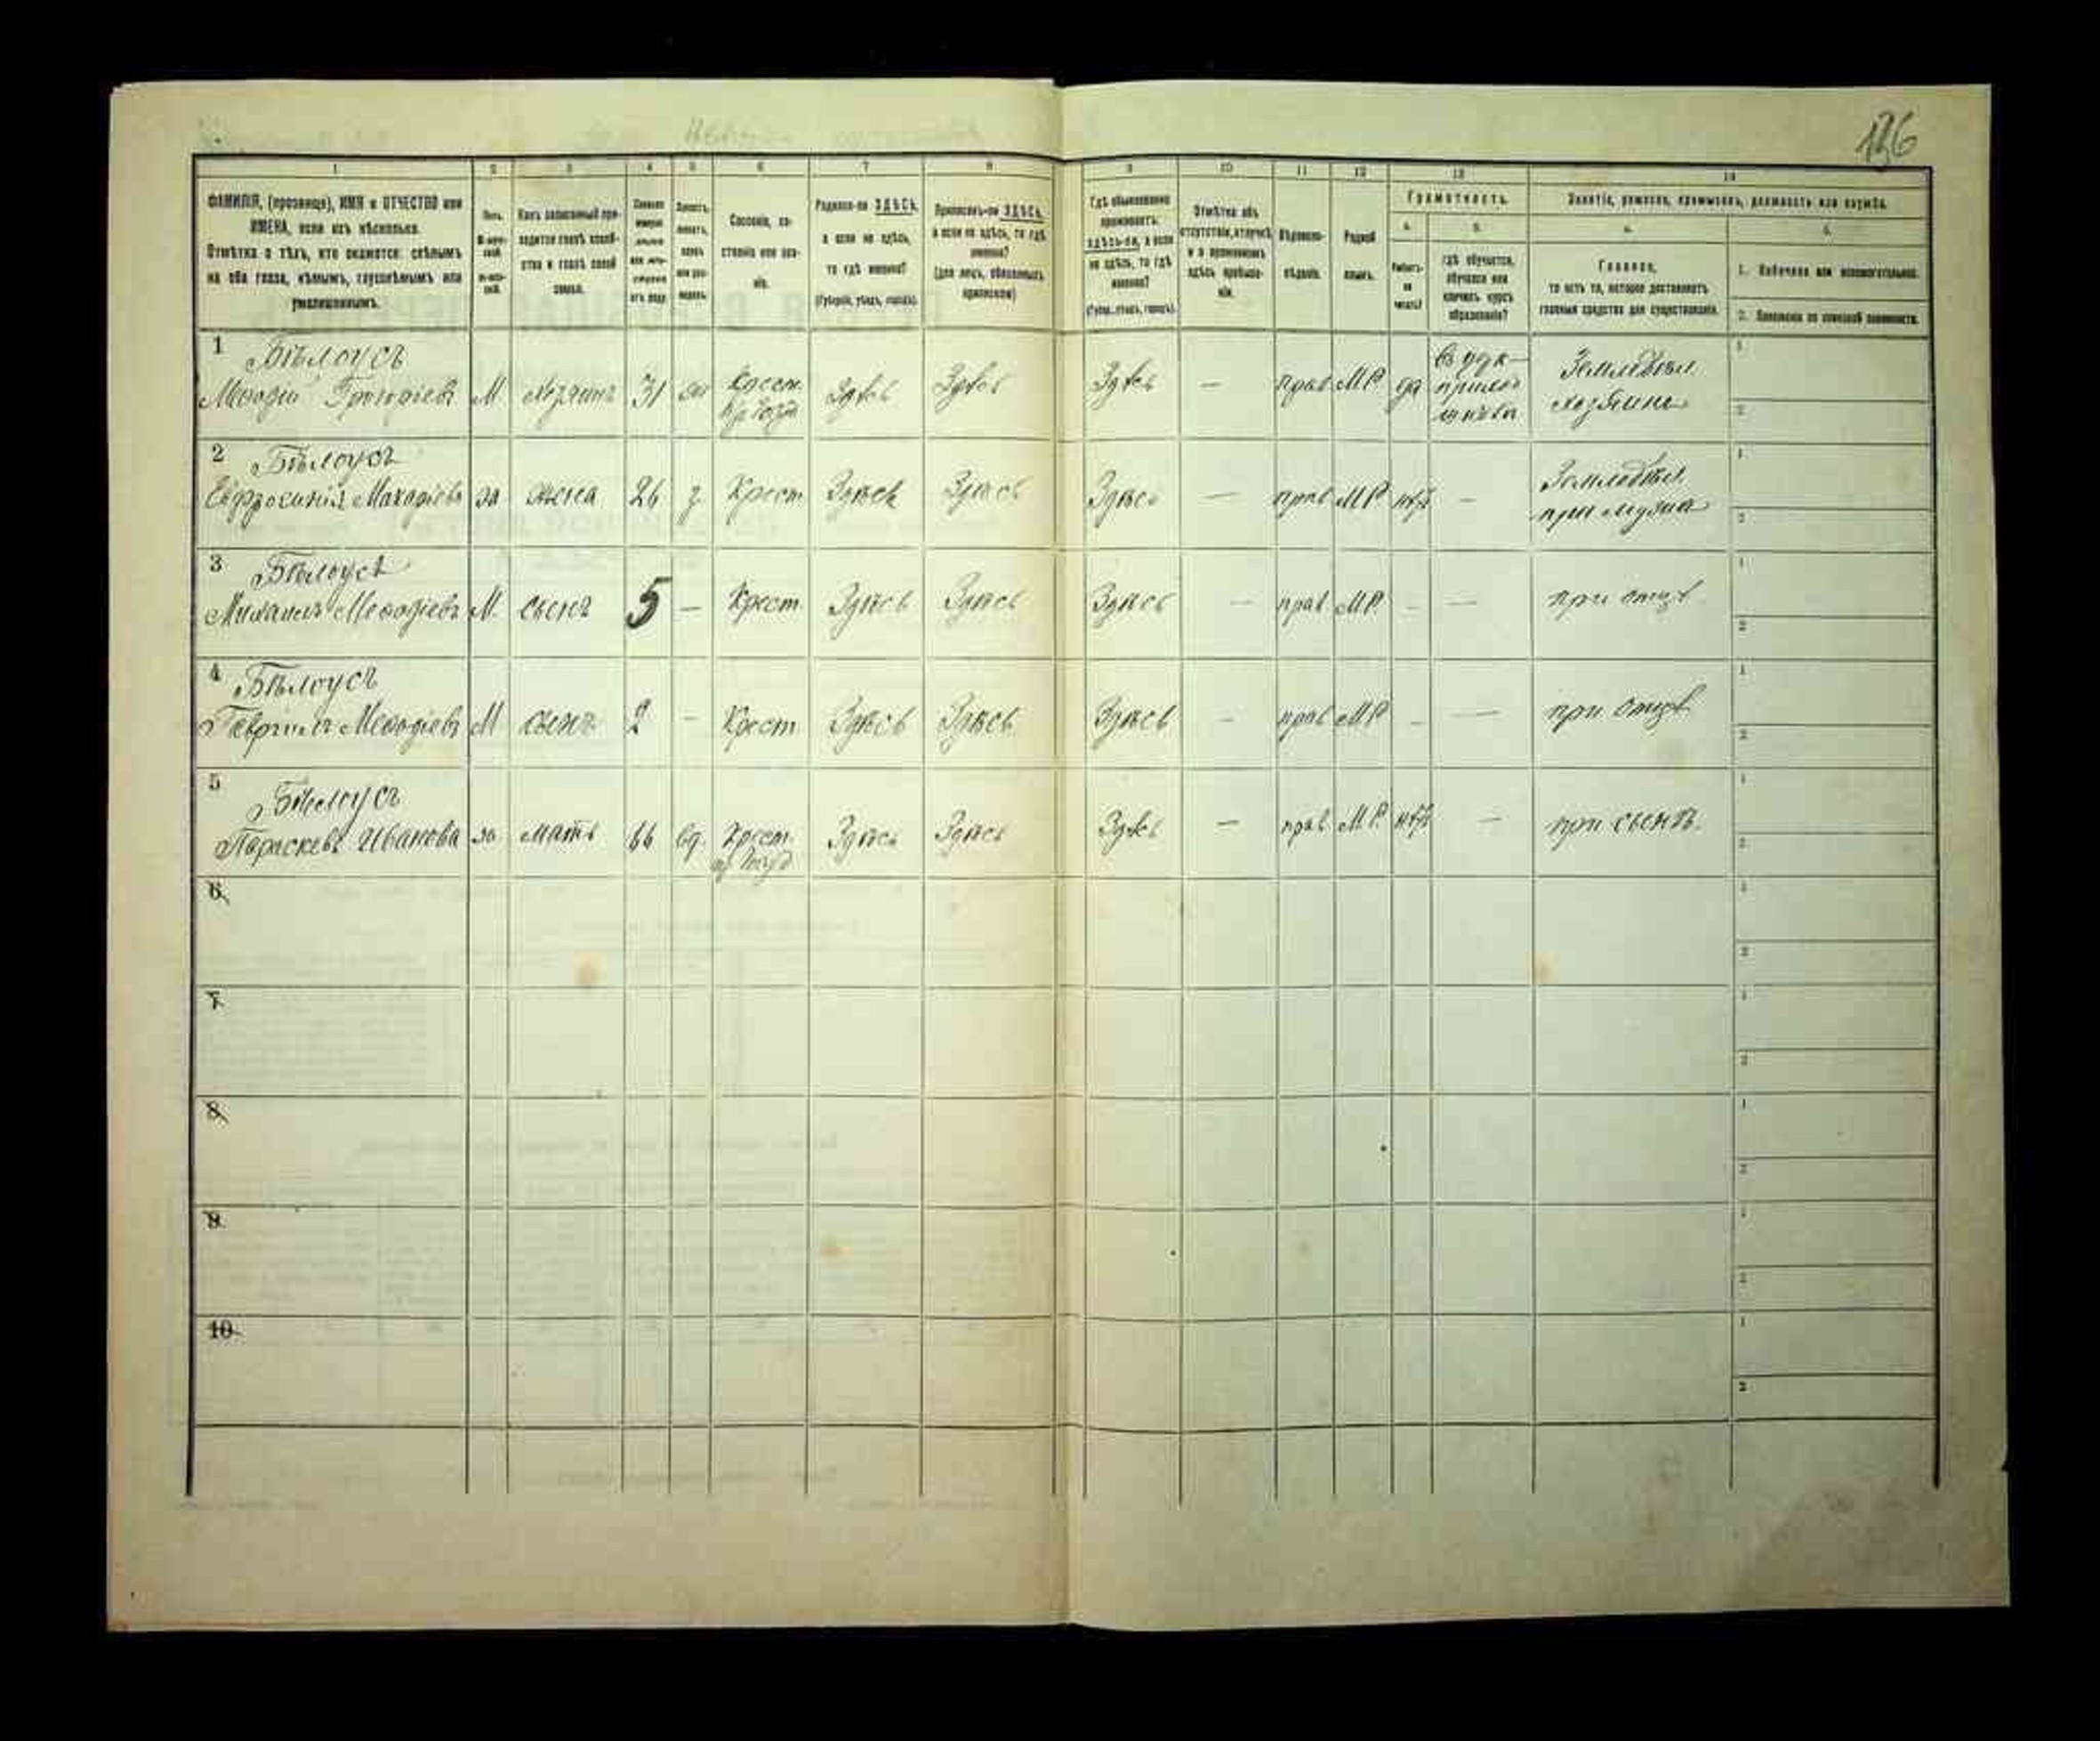 136
1 2 3 4 5 6 7 8 9 10 11 12 13 14
ФАМИЛІЯ, (прозвище), ИМЯ и ОТЧЕСТВО или
ИМЕНА, если ихъ нѣсколько.
Отмѣтка о тѣхъ, кто окажется: слѣпымъ
на оба глаза, нѣмымъ, глухонѣмымъ или
умалишеннымъ.
Полъ.
Какъ записанный при-
ходится главѣ хозяй-
ства и главѣ своей
семьи.
Сословіе, со-
стояніе или зва-
ніе.
Родился-ли ЗДѢСЬ,
а если не здѣсь,
то гдѣ именно?
(Губернія, уѣздъ, городъ).
Приписанъ-ли ЗДѢСЬ,
а если не здѣсь, то гдѣ
именно?
(для лицъ, обязанныхъ
припискою)
Гдѣ обыкновенно
проживаетъ:
здѣсь-ли, а если
не здѣсь, то гдѣ
именно?
(Губер., уѣздъ, городъ).
Отмѣтка объ
отсутствіи, отлучкѣ
и о временномъ
здѣсь пребыва-
ніи.
Вѣроиспо-
вѣданіе.
Родной
языкъ.
Грамотность.
а. б.
Умѣетъ-
ли
читать?
гдѣ обучается,
обучался или
кончилъ курсъ
образованія?
Занятіе, ремесло, промыселъ, должность или служба.
а. б.
Главное,
то есть то, которое доставляетъ
главныя средства для существованія.
1. Побочное или вспомогательное.
2. Положеніе по воинской повинности.
1 Бѣлоусъ
Меѳодій Григоріевъ М. хозяинъ 31 Крест. Здѣсь Здѣсь Здѣсь — прав МР да Земледѣл хозяинъ
2 Бѣлоусъ
Евфросинія жена 26 з. Крест Здѣсь Здѣсь Здѣсь — прав МР нѣтъ — Земледѣл при мужѣ
3 Бѣлоусъ
Михаилъ Меѳодіевъ М. сынъ 5 — Крест Здѣсь Здѣсь Здѣсь — прав МР. - — при отцѣ
4 Бѣлоусъ
Гавріилъ Меѳодіевъ М сынъ 2 - Крест Здѣсь Здѣсь Здѣсь - прав МР - — при отцѣ
5 Бѣлоусъ
Параскева Иванова мать 66 вд. Крест. Здѣсь Здѣсь Здѣсь — прав. МР. нѣтъ — при сынѣ.
6
7
8
9
10